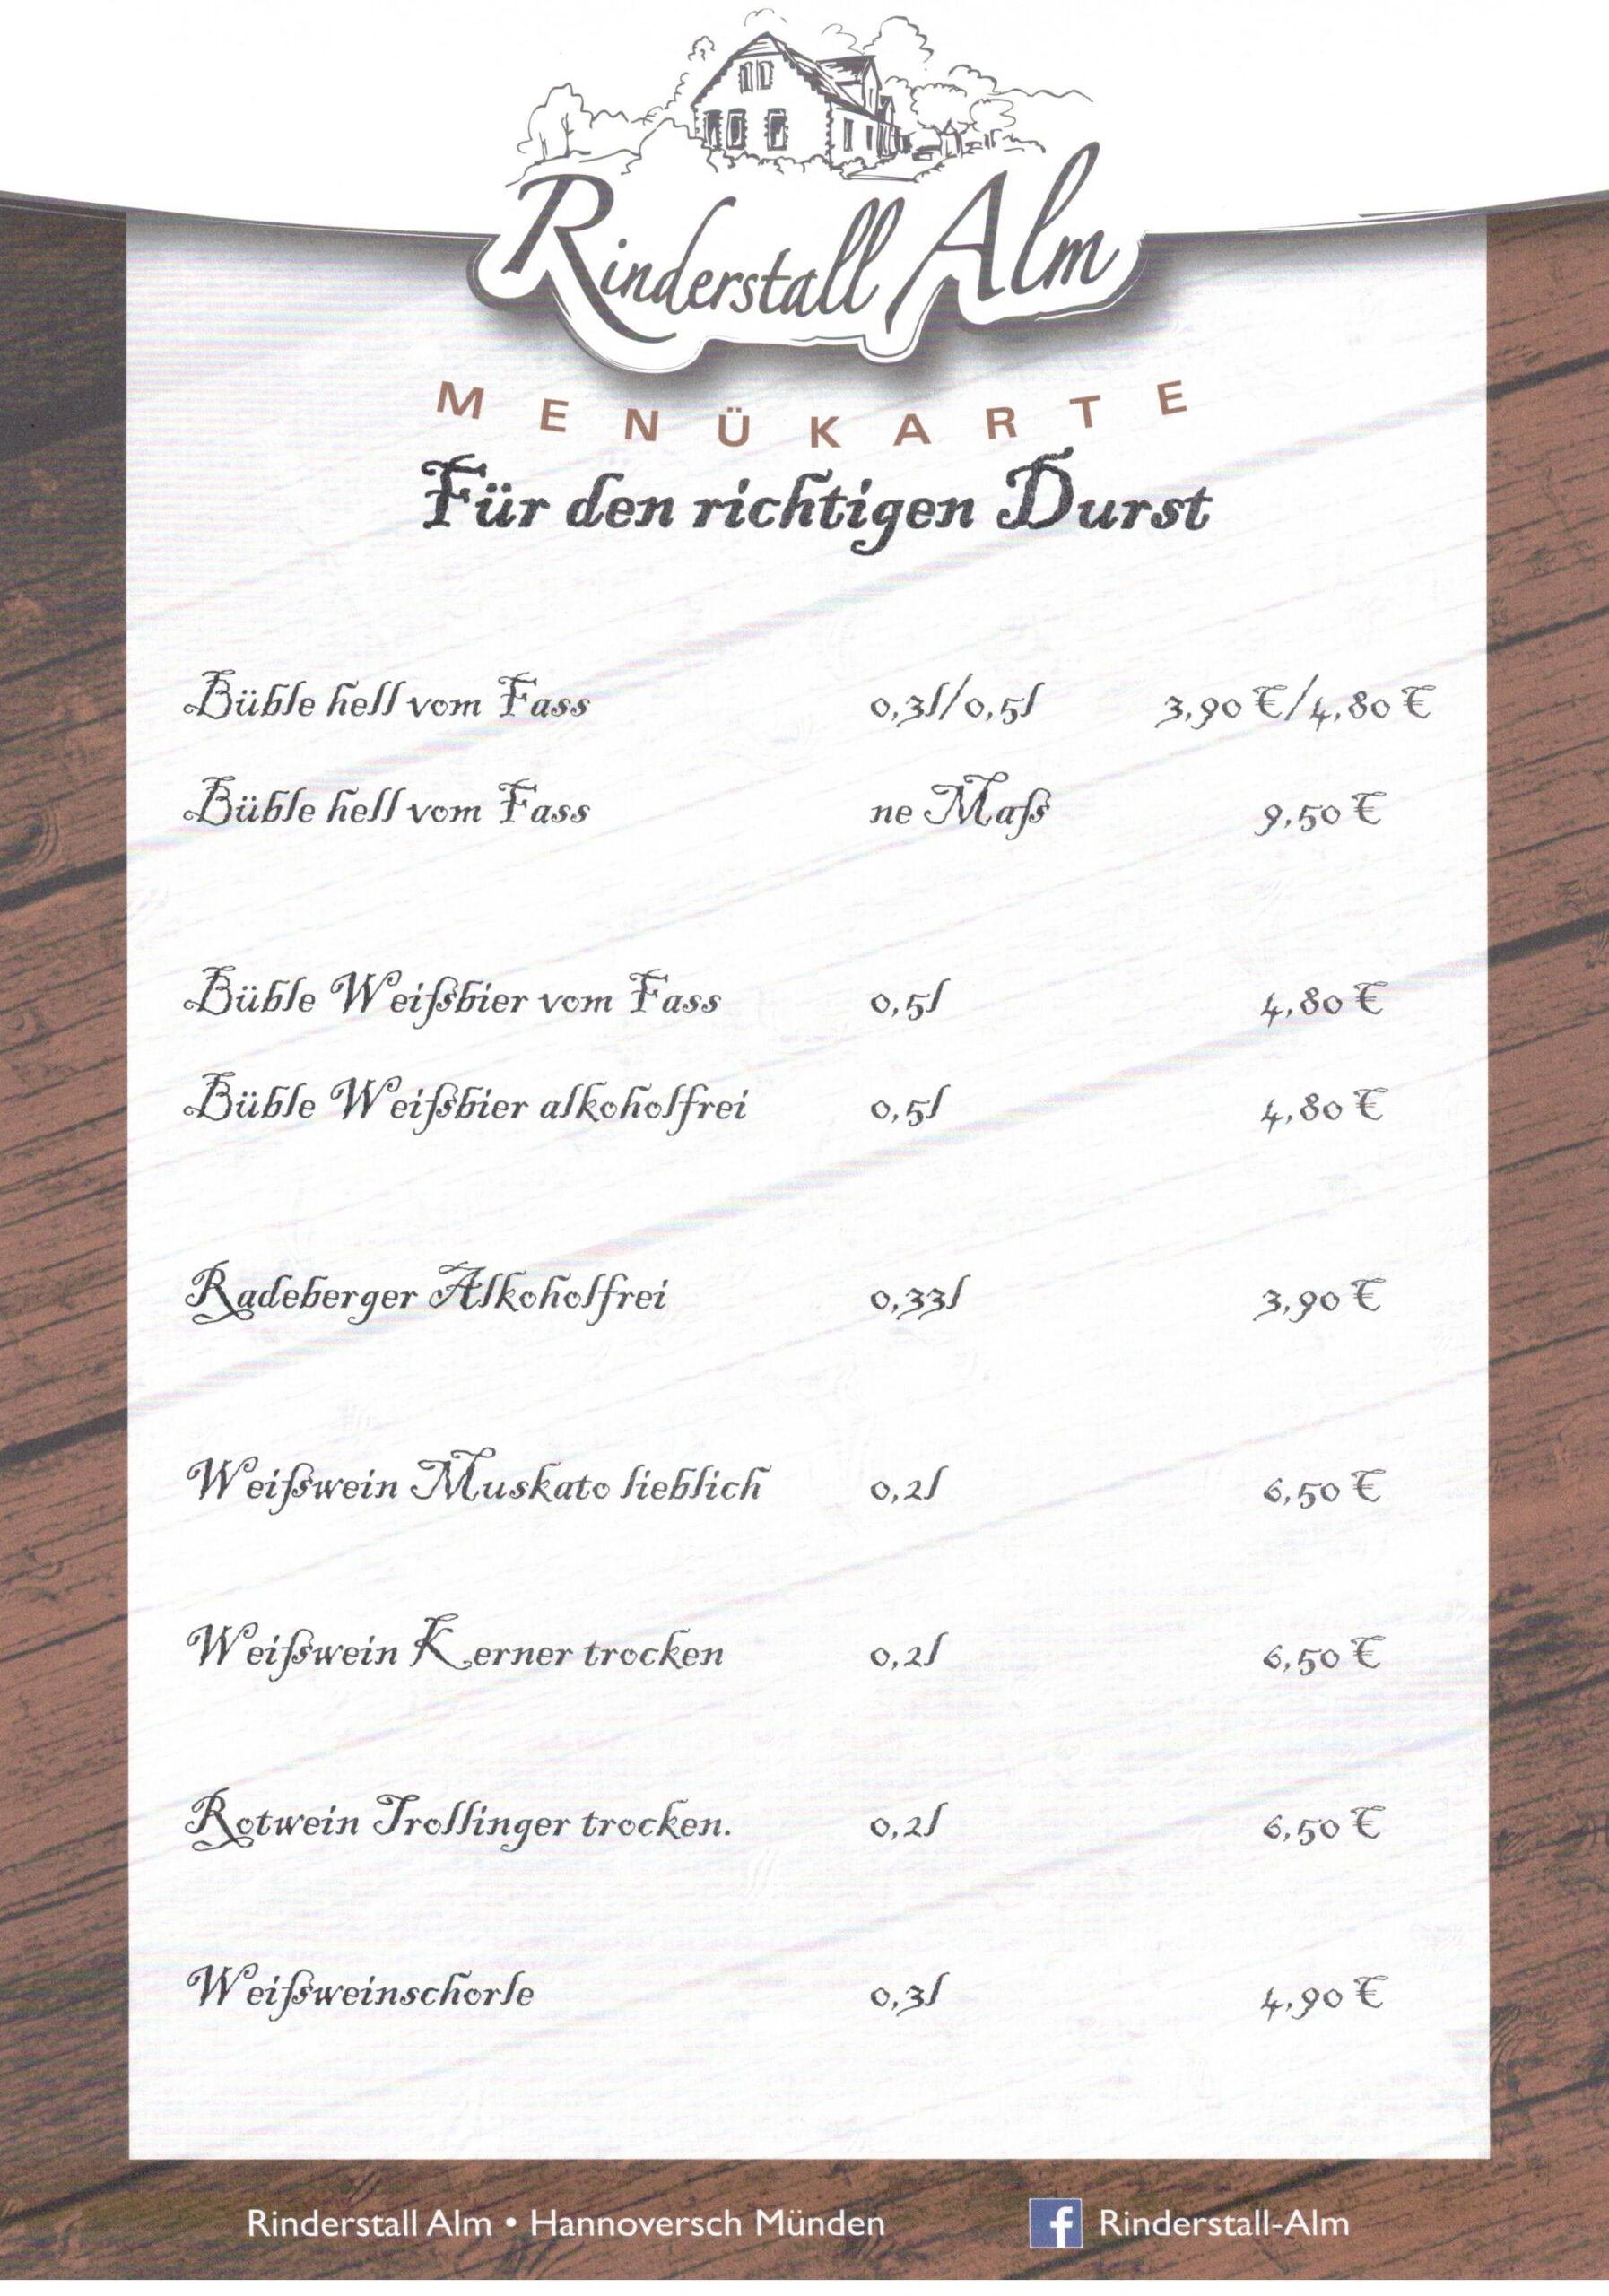 Rinderstall Alm
MENÜKARTE
Für den richtigen Durst
Büble hell vom Fass 0,3l/0,5l 3,90 €/4,80 €
Büble hell vom Fass ne Maß 9,50 €
Büble Weißbier vom Fass 0,5l 4,80 €
Büble Weißbier alkoholfrei 0,5l 4,80 €
Radeberger Alkoholfrei 0,33l 3,90 €
Weißwein Muskato lieblich 0,2l 6,50 €
Weißwein Kerner trocken 0,2l 6,50 €
Rotwein Trollinger trocken. 0,2l 6,50 €
Weißweinschorle 0,3l 4,90 €
Rinderstall Alm • Hannoversch Münden f Rinderstall-Alm